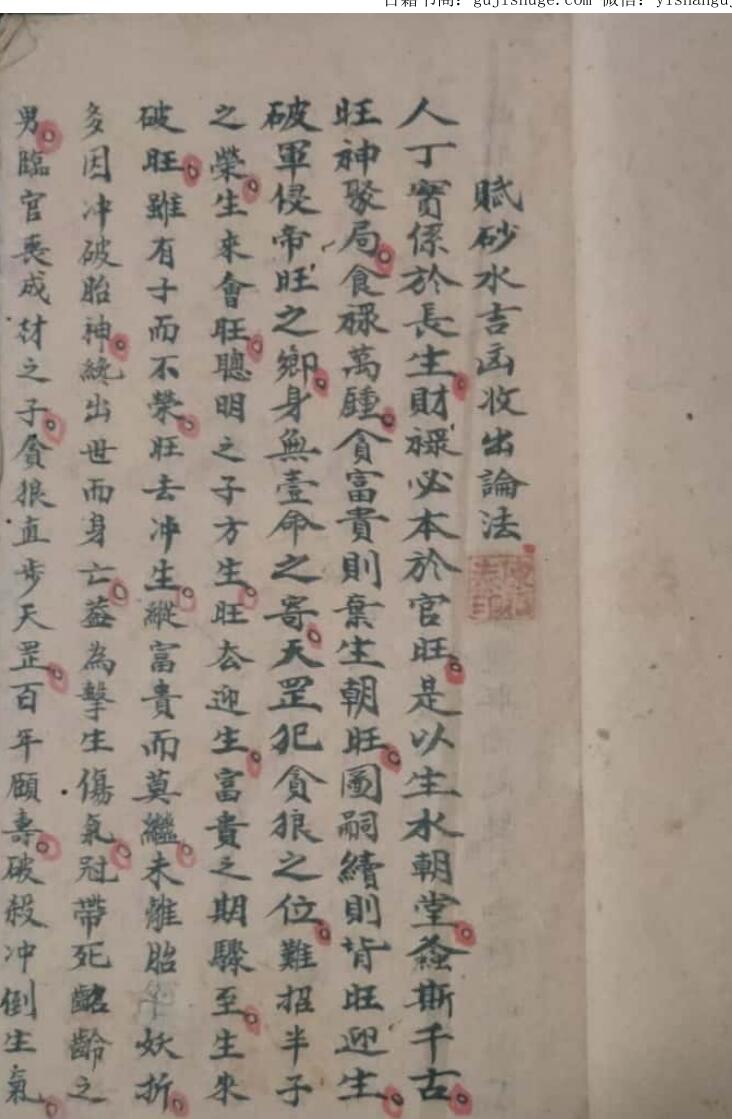 古籍书阁: gujishuge.com 微信: yishangu
賦砂水吉凶收出論法
人丁實係於長生財祿必本於官旺是以生水朝堂螽斯千古
旺神聚局食祿萬鍾貪富貴則棄生朝旺圖嗣續則背旺迎生
破軍侵帝旺之鄉身無壹命之寄天罡犯貪狼之位難招半子
之榮生來會旺聰明之子方生旺去迎生富貴之期驟至生來
破旺雖有子而不榮旺去冲生縱富貴而莫繼未離胎妖折
多因冲破胎神纔出世而身亡蓋為擊生傷氣冠帶死齠齡之
男臨官喪成材之子貪狼直步天罡百年頤壽破殺冲倒生氣